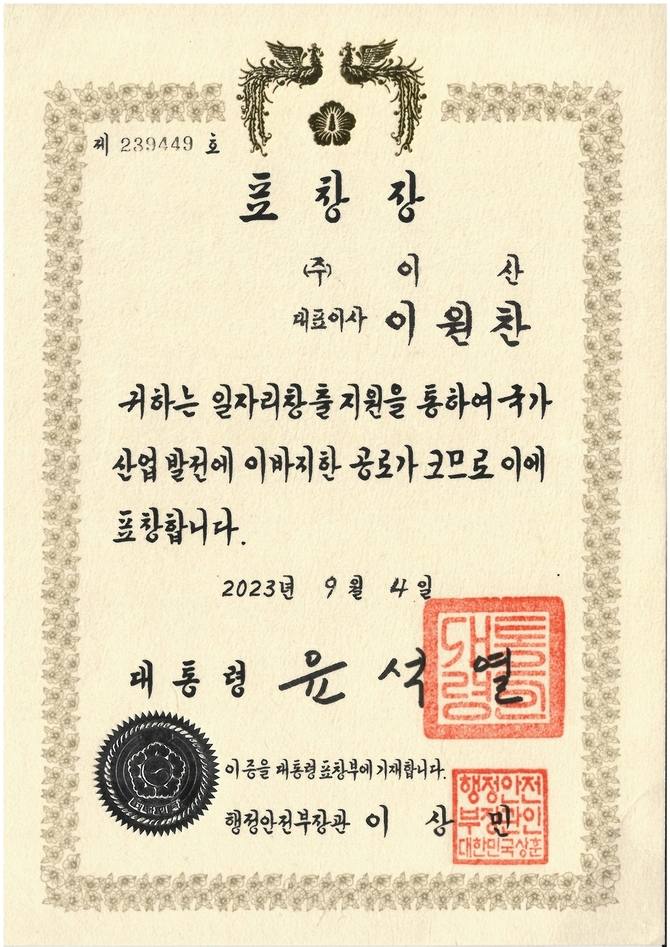 제 239449 호
표창장
(주) 이 산
대표이사 이원찬
귀하는 일자리창출지원을 통하여 국가
산업발전에 이바지한 공로가 크므로 이에
표창합니다.
2023년 9월 4일
대통령 윤석열
대통령의인
이 증을 대통령표창부에 기재합니다.
행정안전부장관 이상민
행정안전
부장관인
대한민국상훈